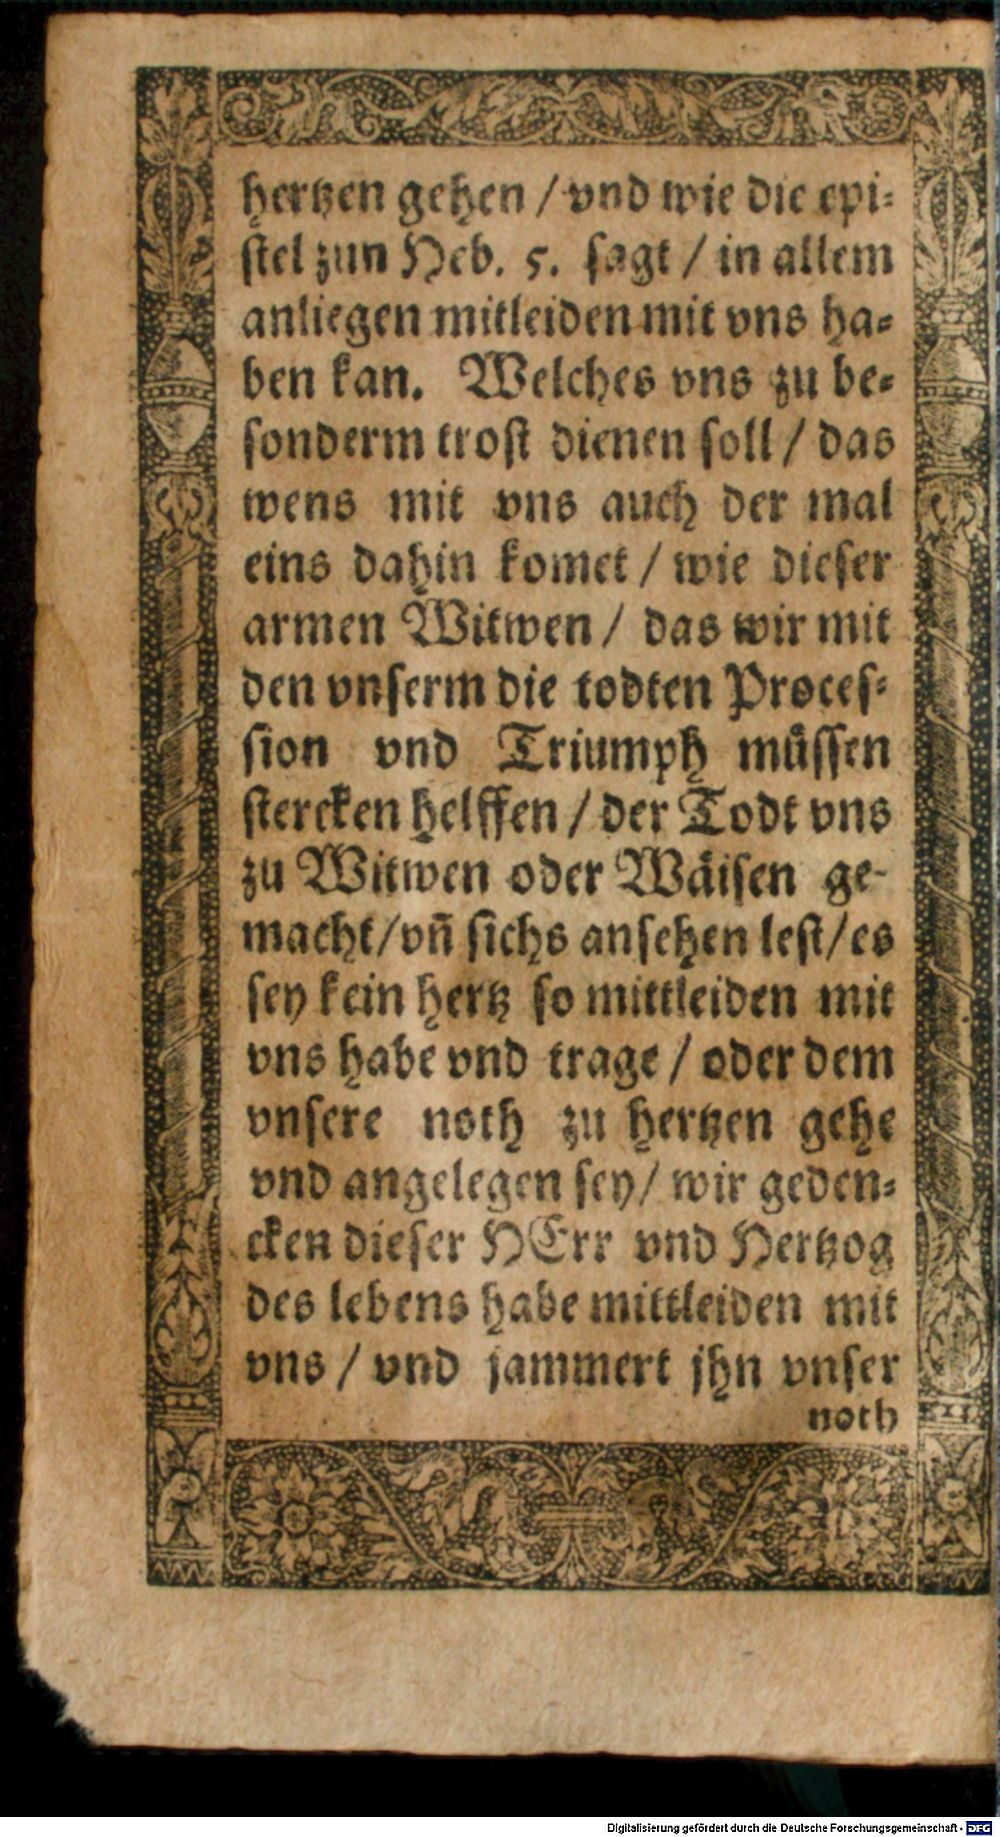 hertzen gehen / vnd wie die epi⸗
stel zun Heb. 5. sagt / in allem
anliegen mitleiden mit vns ha⸗
ben kan. Welches vns zu be⸗
sonderm trost dienen soll / das
wens mit vns auch der mal
eins dahin komet / wie dieser
armen Witwen / das wir mit
den vnserm die todten Proces⸗
sion vnd Triumph müssen
stercken helffen / der Todt vns
zu Witwen oder Wäisen ge-
macht / vn̄ sichs ansehen lest / es
sey kein hertz so mittleiden mit
vns habe vnd trage / oder dem
vnsere noth zu hertzen gehe
vnd angelegen sey / wir geden⸗
cken dieser HErr vnd Hertzog
des lebens habe mittleiden mit
vns / vnd jammert jhn vnser
noth
Digitalisierung gefördert durch die Deutsche Forschungsgemeinschaft - DFG